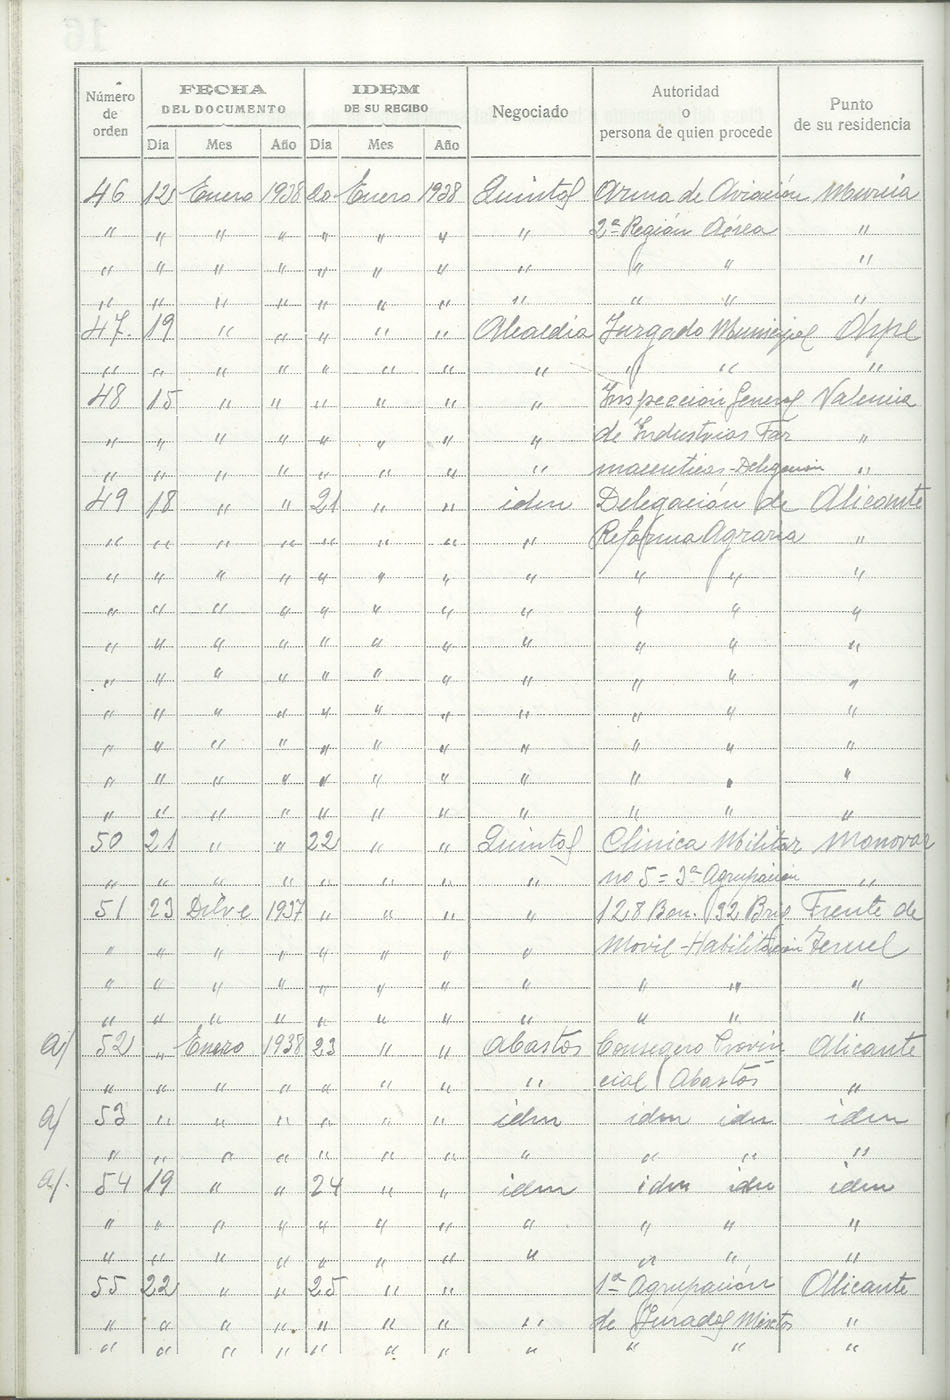 Número de orden | FECHA DEL DOCUMENTO | IDEM DE SU RECIBO | Negociado | Autoridad o persona de quien procede | Punto de su residencia
Día | Mes | Año | Día | Mes | Año
46 12 Enero 1938 20 Enero 1938 Quintas Arma de Aviación Murcia
" " " " " " " " 2ª Región Aérea "
" " " " " " " " " " "
" " " " " " " " " " "
47. 19 " " " " " Alcaldia Juzgado Municipal Aspe
" " " " " " " " " " "
48 15 " " " " " " Inspección General Valencia
" " " " " " " " de Industrias Far "
" " " " " " " " maceuticas-Delegación "
49 18 " " 21 " " idm Delegación de Alicante
" " " " " " " " Reforma Agraria "
" " " " " " " " " " "
" " " " " " " " " " "
" " " " " " " " " " "
" " " " " " " " " " "
" " " " " " " " " " "
" " " " " " " " " " "
" " " " " " " " " " "
" " " " " " " " " " "
50 21 " " 22 " " Quintas Clinica Militar Monovar
" " " " " " " " no 5 = 3ª Agrupación "
51 23 Dibre 1937 " " " " 128 Bon. 32 Brig Frente de
" " " " " " " " Movil-Habilitación Teruel
" " " " " " " " " " "
" " " " " " " " " " "
a/ 52 " Enero 1938 23 " " Abastos Consegero Provin Alicante
" " " " " " " " cial Abastos "
a/ 53 " " " " " " idm idm idm idm
" " " " " " " " " " "
a/. 54 19 " " 24 " " idm idm idm idm
" " " " " " " " " " "
" " " " " " " " " " "
55 22 " " 25 " " 1ª Agrupación Alicante
" " " " " " " " de Jurados Mixtos "
" " " " " " " " " " "